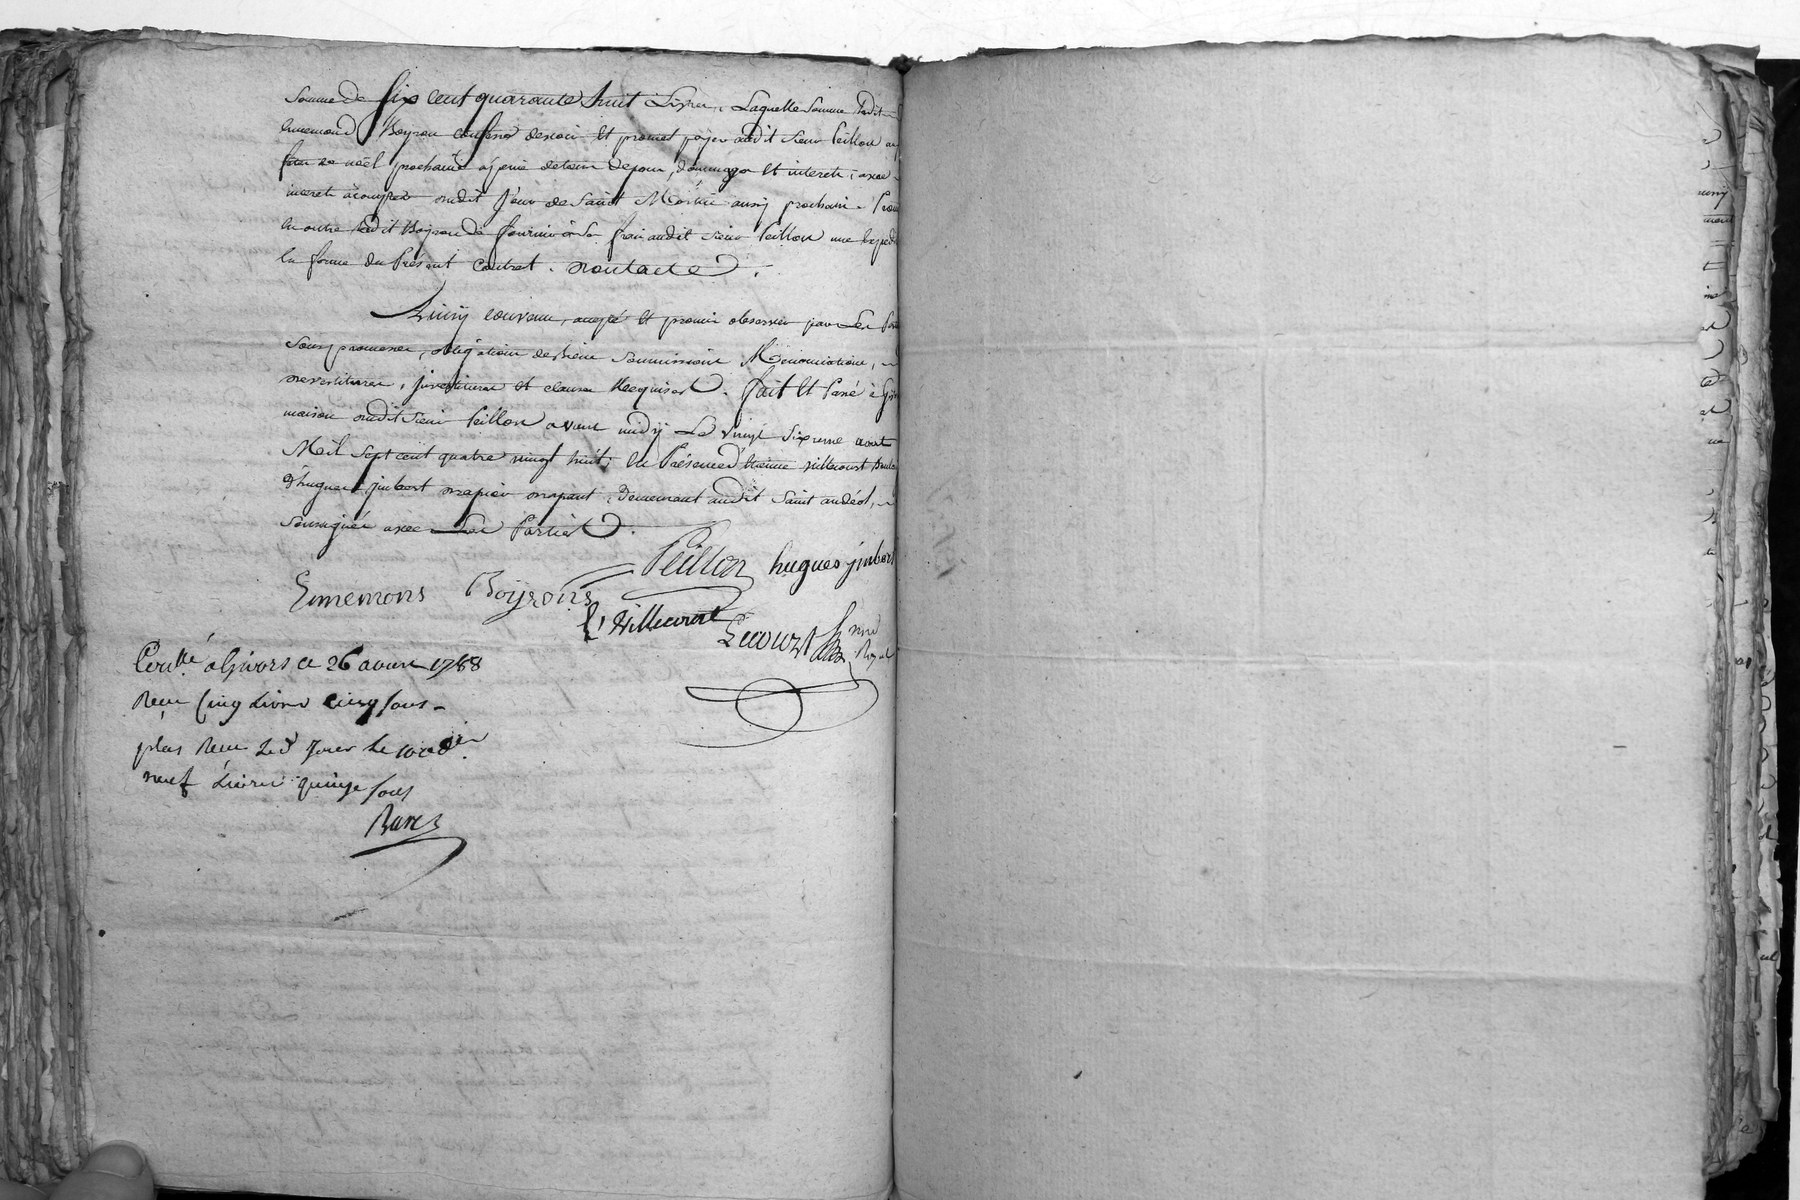 Somme de six cent quarante huit Livres, Laquelle somme Ledit
Ennemond Boyron confesse devoir Et promet payer audit sieur Peillon au
jour de noël prochain à peine de tous depens, dommages Et interets; avec
interets à compter dudit jour de Saint Martin aussy prochain. Promet
En outre Ledit Boyron de fournir à ses frais audit sieur Peillon une Expedition
En forme du Présent Contrat. dont acte.
Ainsy convenu, accepté Et promis observer par Les Parties
sous promesses, obligations de biens soumissions, Renonciations,
devestitures, jnvestitures et clauses Requises. fait Et Passé à
maison dudit sieur Peillon avant midy Le vingt sixieme aout
Mil sept cent quatre vingt huit; En Présence d'Etienne villecourt
d'hugues jmbert, demeurant audit Saint andéol,
soussignés avec Les Parties.
Peillon hugues jmbert
Ennemons Boyrons
E! Villecourt
Lecourt
nre
Royal
Con.llé à Givors ce 26 aoust 1788
Reçu Cinq Livres cinq sous
plus Reçu
neuf Livres quinze sous